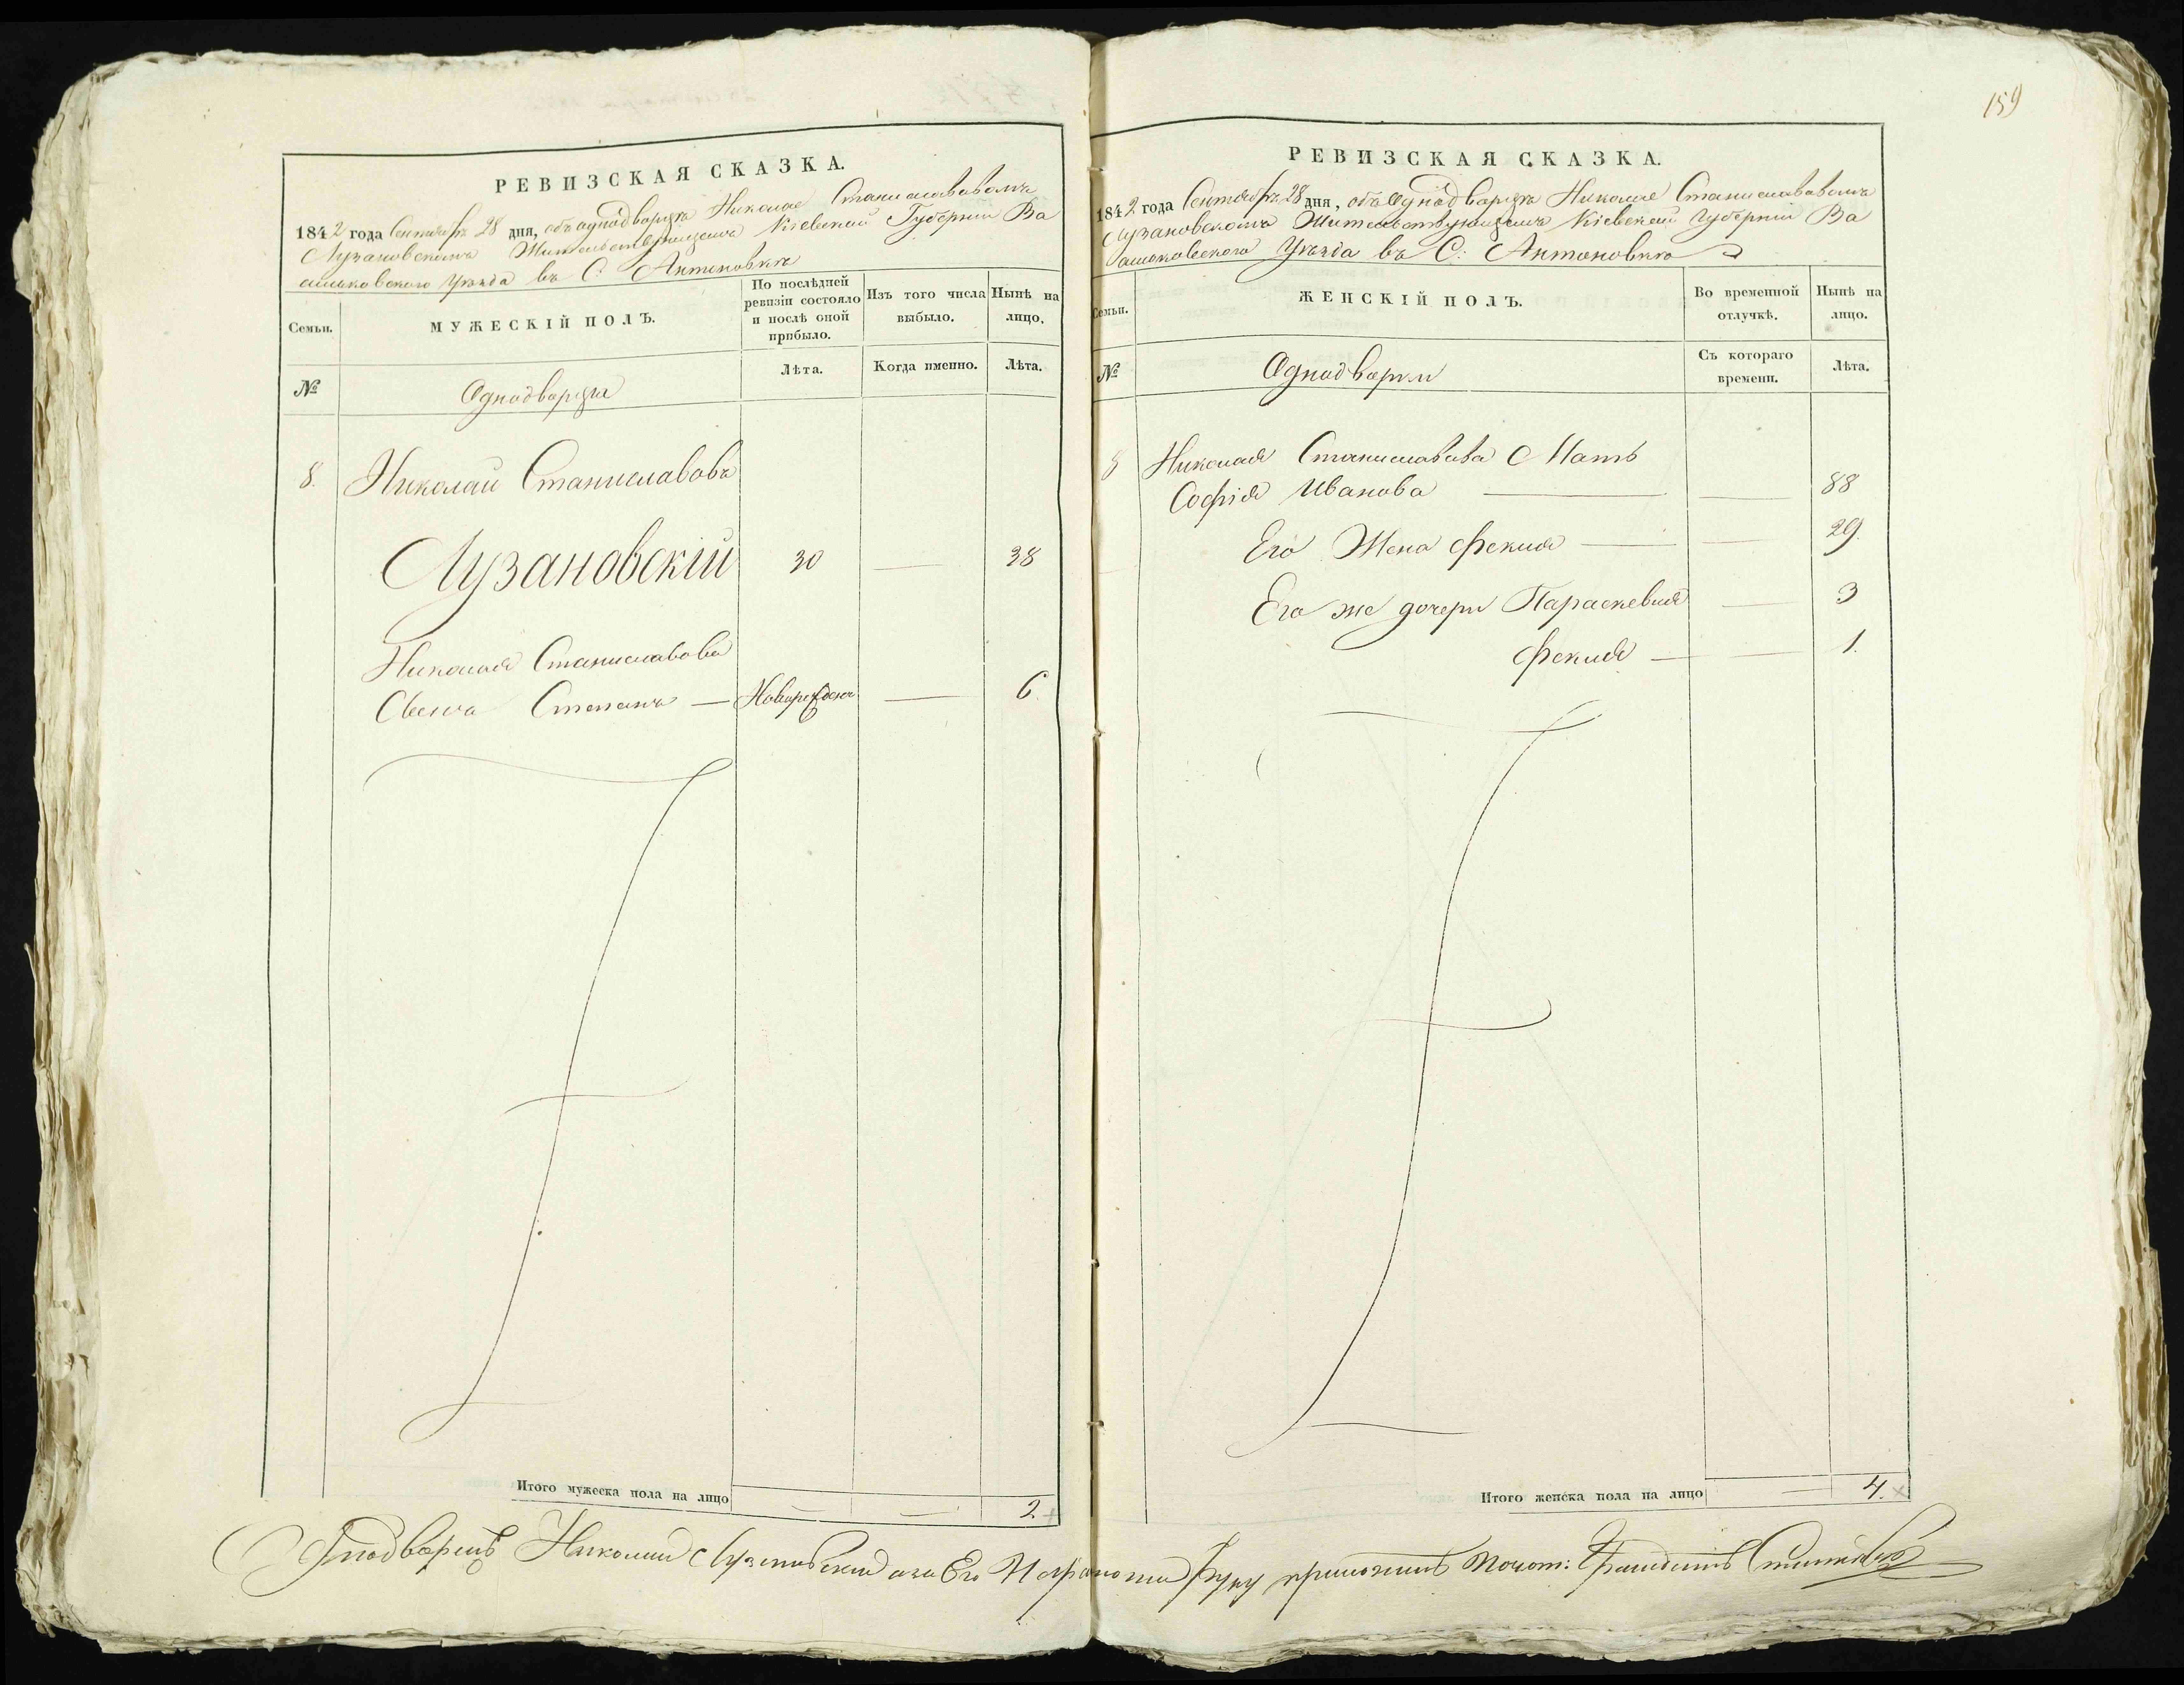 159
РЕВИЗСКАЯ СКАЗКА.
1842 года Сентября 28 дня, объ однодворцѣ Николае Станиславовомъ
Лузановскомъ Жительствующемъ Кіевской Губерніи Ва
сильковского Уѣзда въ С: Антоновкѣ
Семьи.
МУЖЕСКІЙ ПОЛЪ.
По послѣдней ревизіи состояло и послѣ оной прибыло.
Изъ того числа выбыло.
Нынѣ на лицо.
№
Однодворцы
Лѣта.
Когда именно.
Лѣта.
8. Николай Станиславовъ
Лузановскій 30 — 38
Николая Станиславова
Сынъ Степанъ — Новорожденъ — 6.
Итого мужеска пола на лицо — — 2.
РЕВИЗСКАЯ СКАЗКА.
1842 года Сентября 28 дня, объ Однодворцѣ Николае Станиславовомъ
Лузановскомъ Жительствующемъ Кіевской Губерніи Ва
сильковского Уѣзда въ С: Антоновкѣ
Семьи.
ЖЕНСКІЙ ПОЛЪ.
Во временной отлучкѣ.
Нынѣ на лицо.
№
Однодворки
Съ котораго времени.
Лѣта.
8 Николая Станиславова Мать
Софія Иванова — — 88
Его Жена Фекла — — 29.
Его же дочери Параскевія — 3
Фекла — — 1.
Итого женска пола на лицо — 4.
Однодворецъ Николай Лузановскій а за Его Неграмотна Руку приложилъ